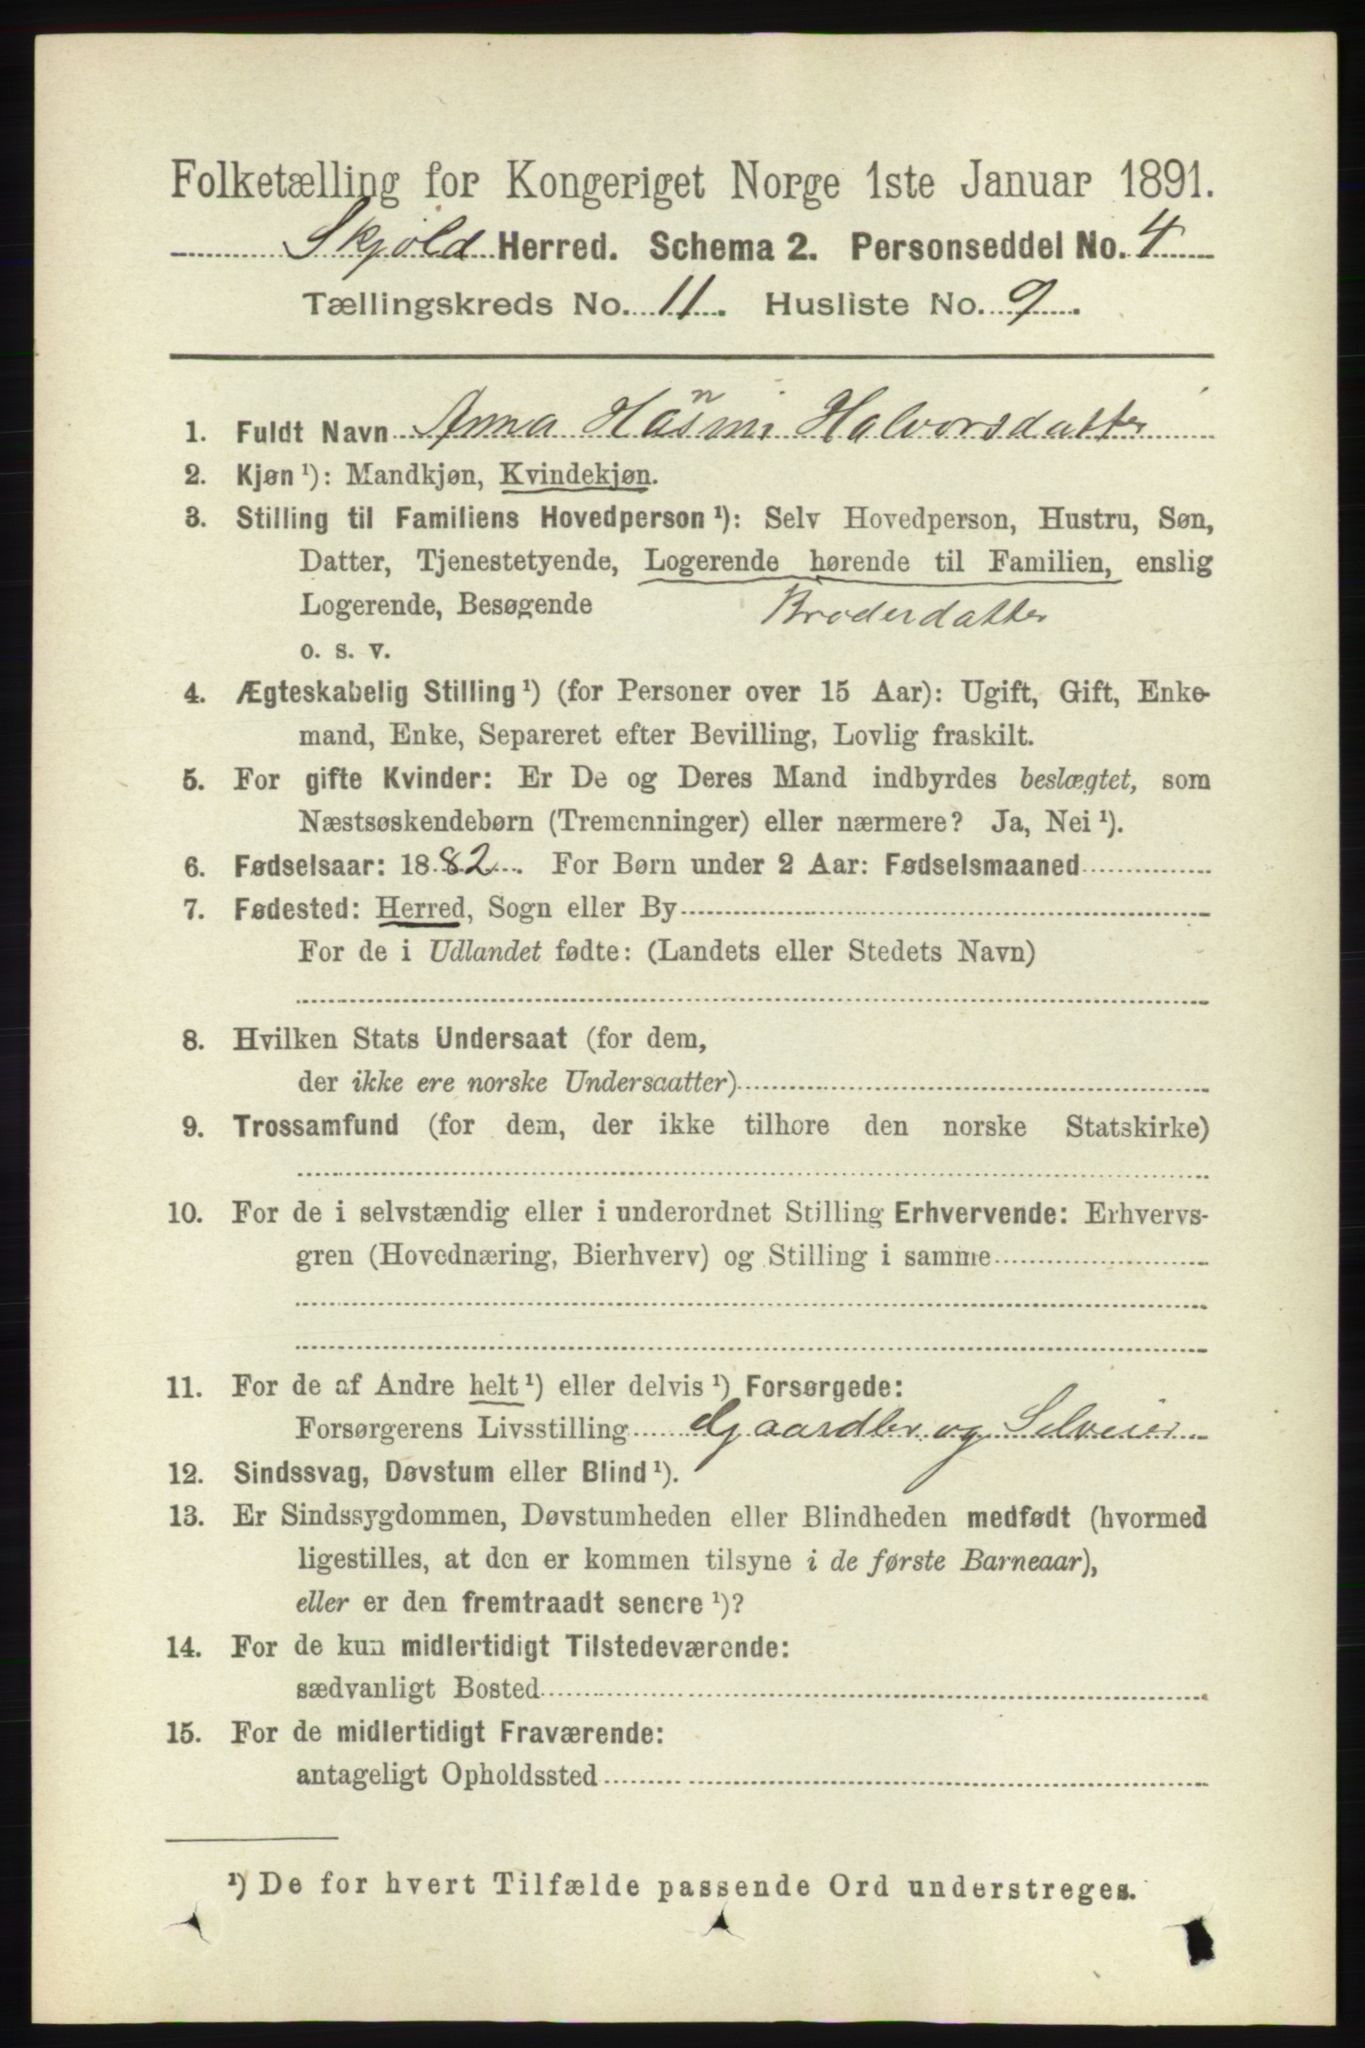 Folketælling for Kongeriget Norge 1ste Januar 1891.
Skjold Herred. Schema 2. Personseddel No. 4
Tællingskreds No. 11. Husliste No. 9.
1. Fuldt Navn Anna Halvorsdatter
2. Kjøn ¹): Mandkjøn, Kvindekjøn.
3. Stilling til Familiens Hovedperson ¹): Selv Hovedperson, Hustru, Søn,
Datter, Tjenestetyende, Logerende hørende til Familien, enslig
Logerende, Besøgende Broderdatter
o. s. v.
4. Ægteskabelig Stilling ¹) (for Personer over 15 Aar): Ugift, Gift, Enke-
mand, Enke, Separeret efter Bevilling, Lovlig fraskilt.
5. For gifte Kvinder: Er De og Deres Mand indbyrdes beslægtet, som
Næstsøskendebørn (Tremenninger) eller nærmere? Ja, Nei ¹).
6. Fødselsaar: 1882. For Børn under 2 Aar: Fødselsmaaned
7. Fødested: Herred, Sogn eller By
For de i Udlandet fødte: (Landets eller Stedets Navn)
8. Hvilken Stats Undersaat (for dem,
der ikke ere norske Undersaatter)
9. Trossamfund (for dem, der ikke tilhøre den norske Statskirke)
10. For de i selvstændig eller i underordnet Stilling Erhvervende: Erhvervs-
gren (Hovednæring, Bierhverv) og Stilling i samme
11. For de af Andre helt ¹) eller delvis ¹) Forsørgede:
Forsørgerens Livsstilling Gaardbr og Selveier
12. Sindssvag, Døvstum eller Blind ¹).
13. Er Sindssygdommen, Døvstumheden eller Blindheden medfødt (hvormed
ligestilles, at den er kommen tilsyne i de første Barneaar),
eller er den fremtraadt senere ¹)?
14. For de kun midlertidigt Tilstedeværende:
sædvanligt Bosted
15. For de midlertidigt Fraværende:
antageligt Opholdssted
¹) De for hvert Tilfælde passende Ord understreges.